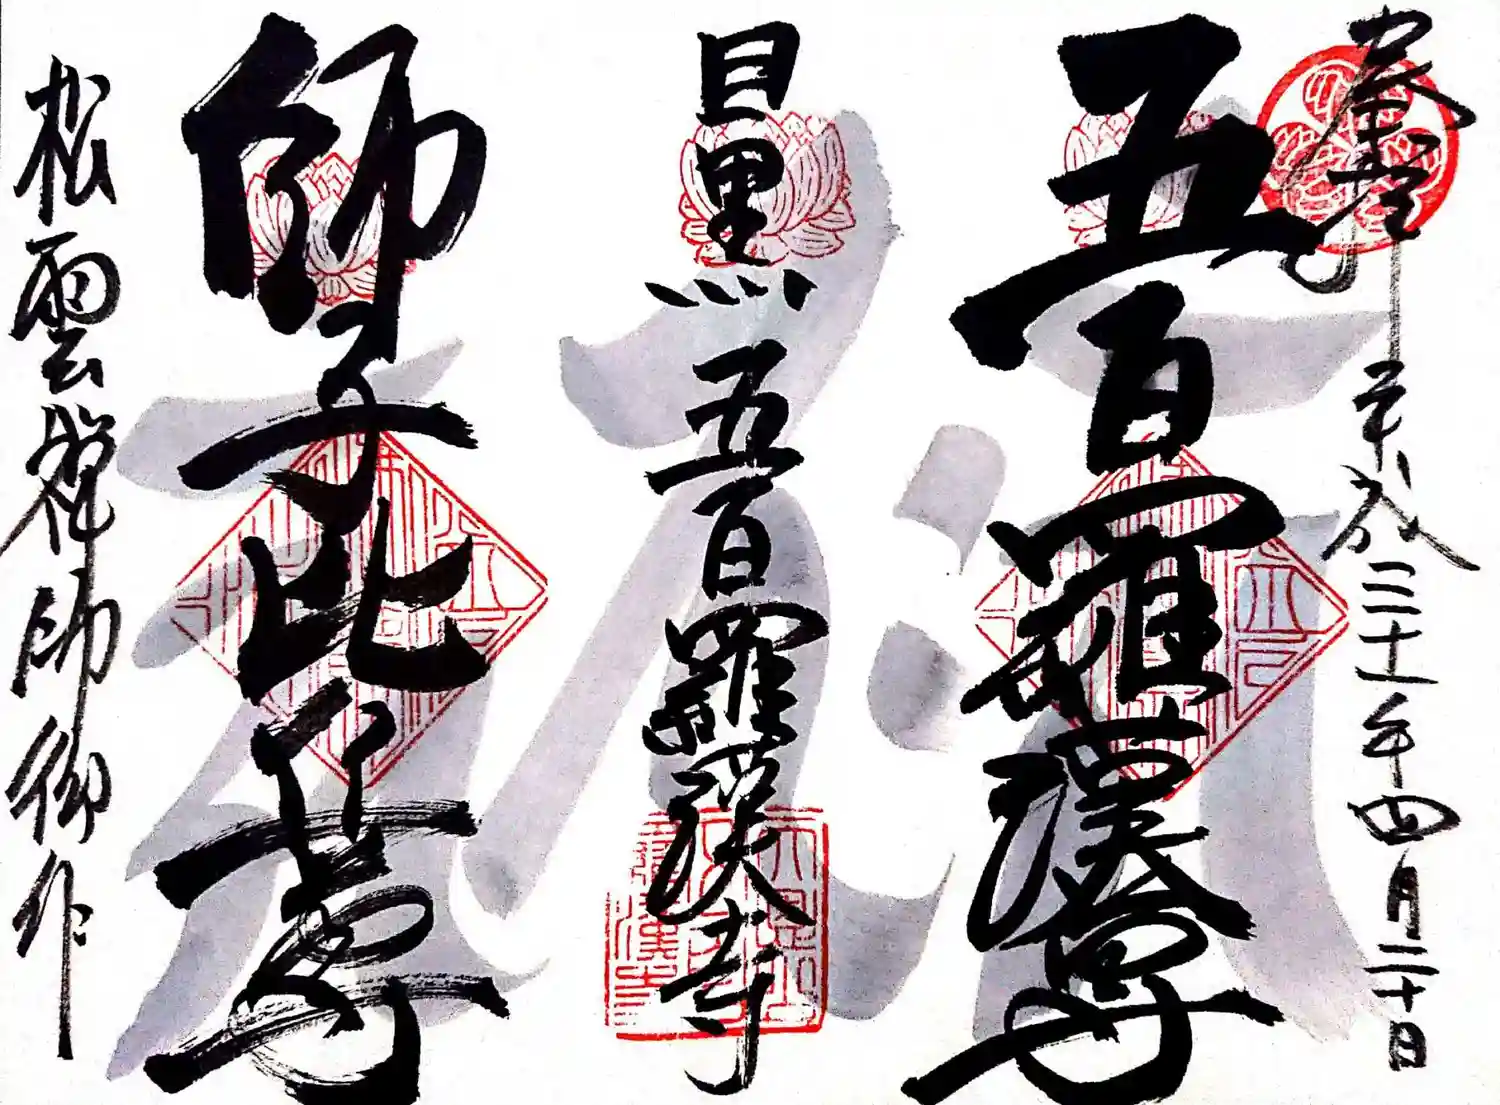 奉拝
平成三十一年四月二十日
五百羅漢尊
目黒五百羅漢寺
師子比丘尊
松雲禅師御作